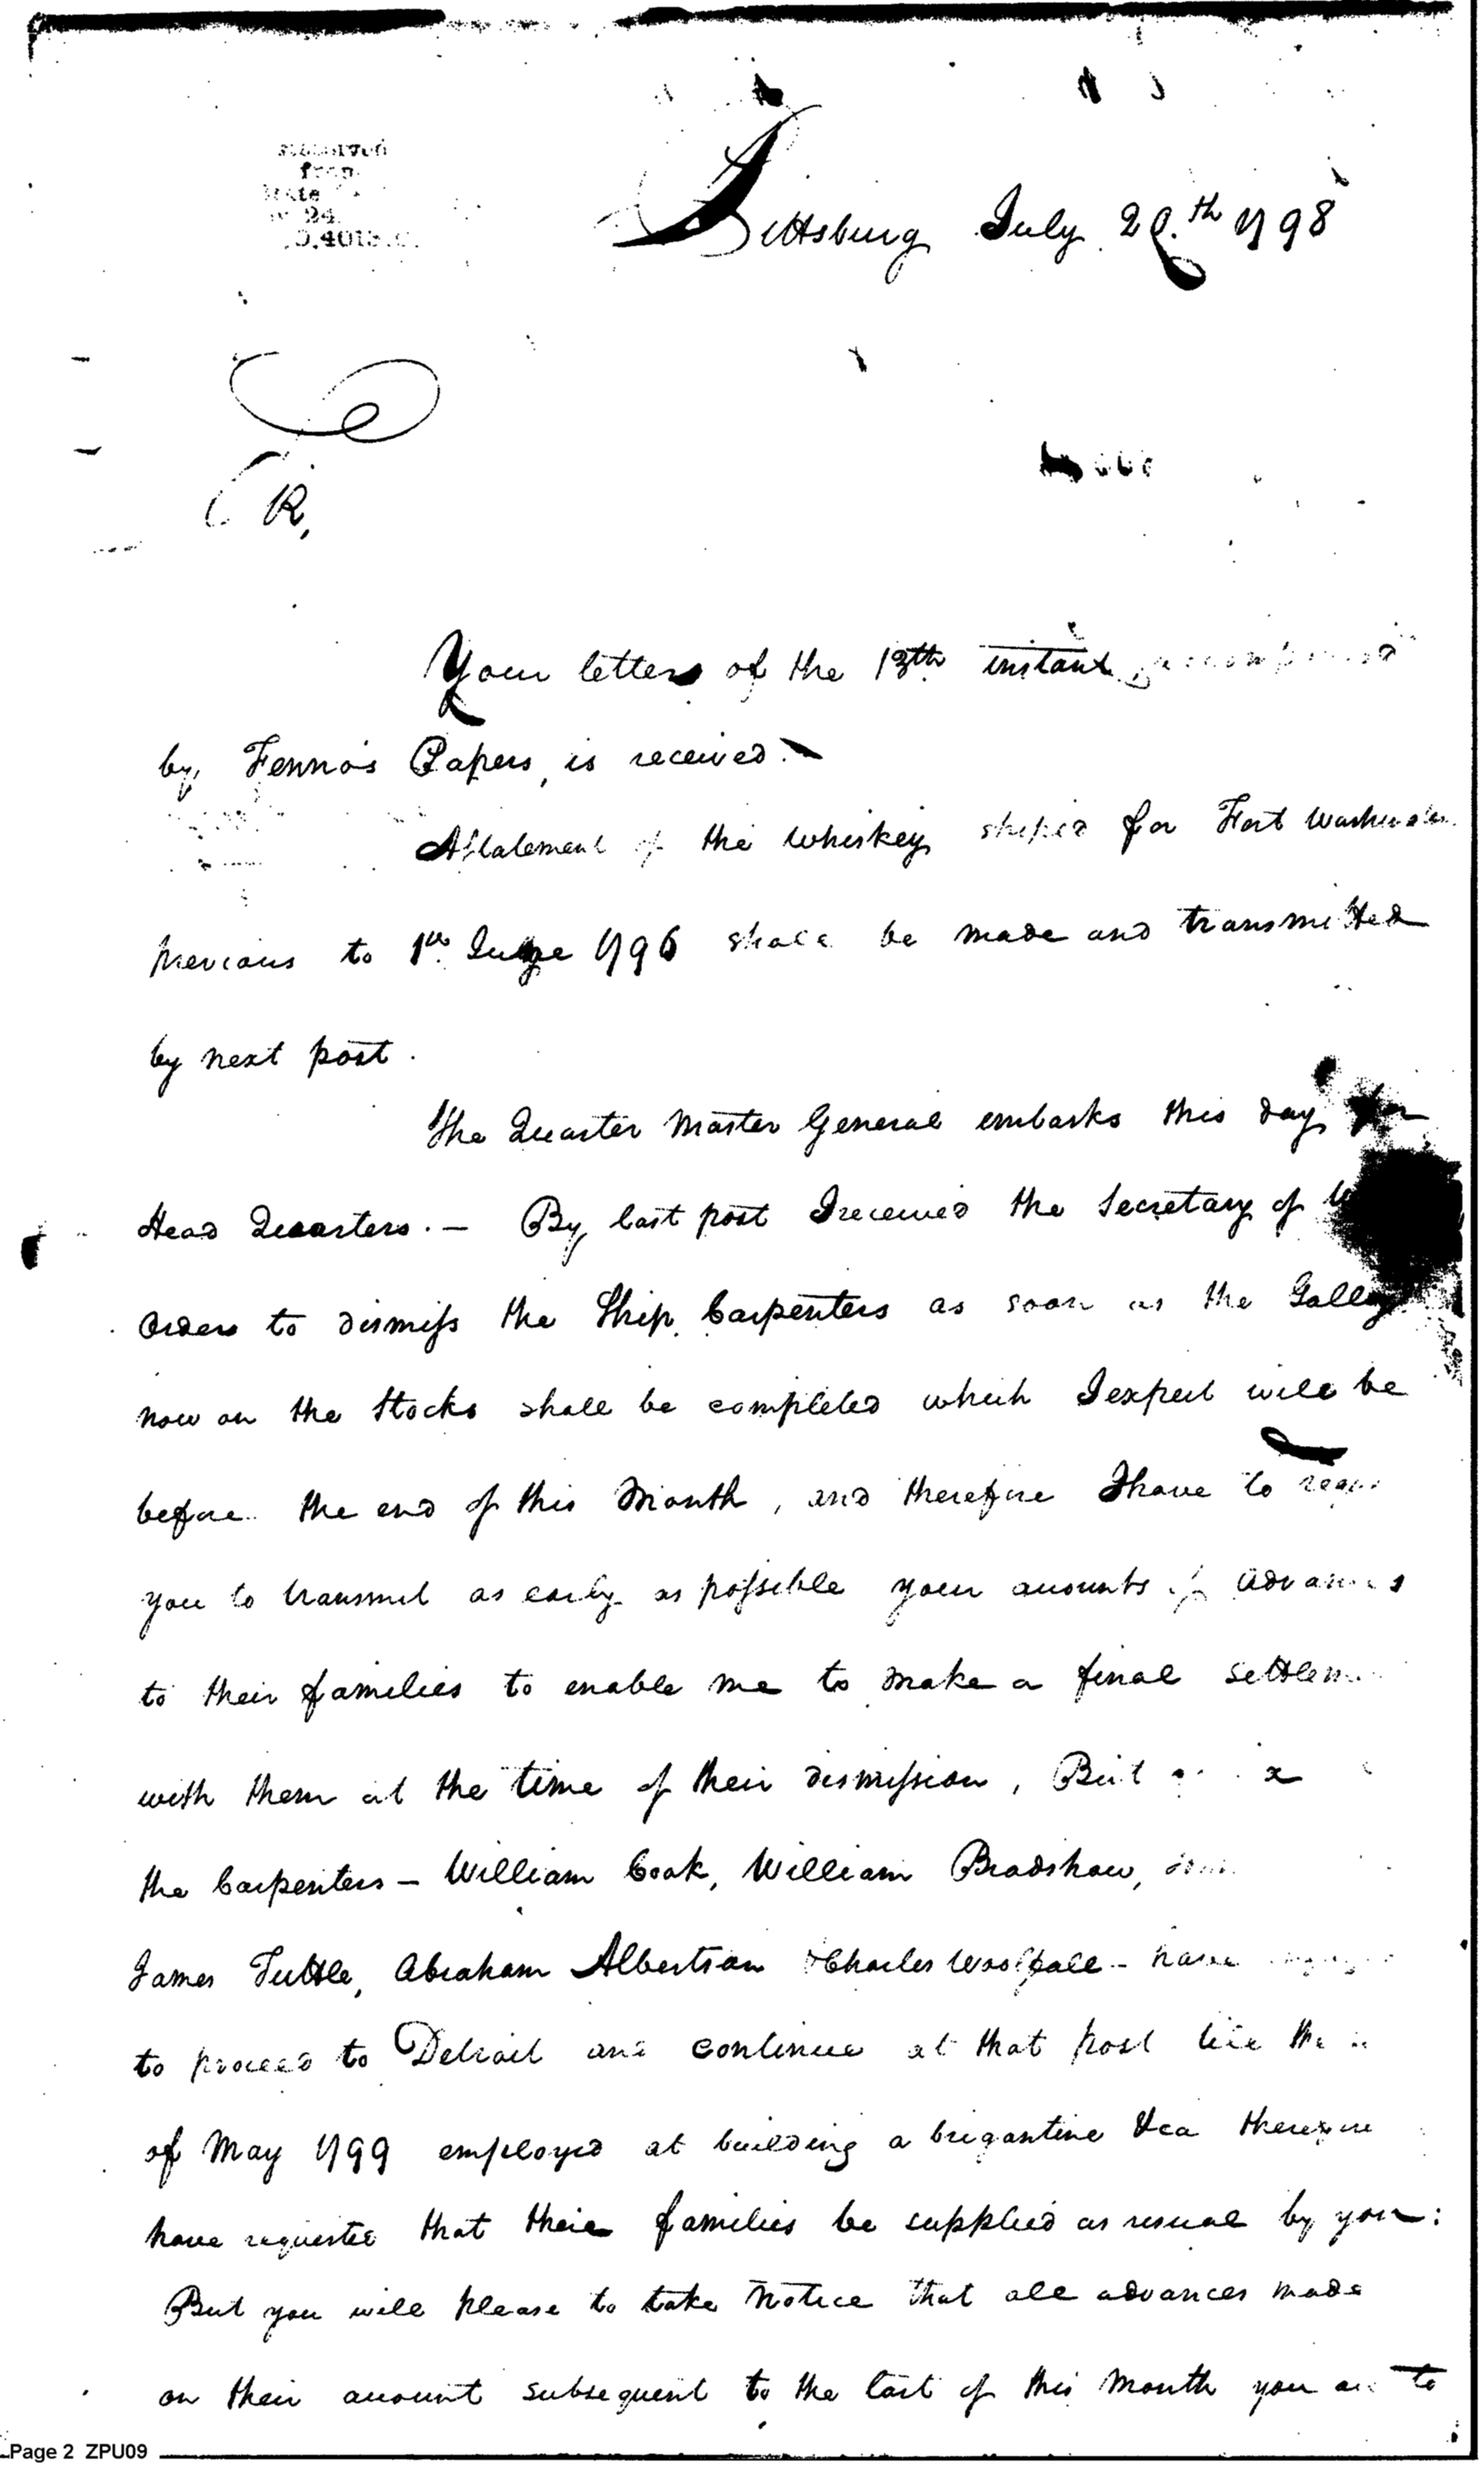 Received
from
State
24
Pittsburg July 20.th 1798
Sir,
Your letters of the 13th instant accompanied
by Fenno's Papers, is received.
A Statement of the Whiskey shiped for Fort Washington
previous to 1st June 1796 shall be made and transmitted
by next post.
The Quarter Master General embarks this day for
Head Quarters. – By last post I received the Secretary of
orders to dismiss the Ship Carpenters as soon as the Galley
now on the Stocks shall be completed which I expect will be
before the end of this Month, and therefore I have to
you to transmit as early as possible your amounts of advances
to their families to enable me to make a final settlem
with them at the time of their dismission, But
the Carpenters – William Cook, William Bradshaw,
James Tuttle, Abraham Albertson & Charles Woolfall – have
to proceed to Detroit and continue at that post till the
of May 1799 employed at building a brigantine &ca therefore
have requested that their families be supplied as usual by you:
But you will please to take notice that all advances made
on their account subsequent to the last of this Month you are to
Page 2 ZPU09